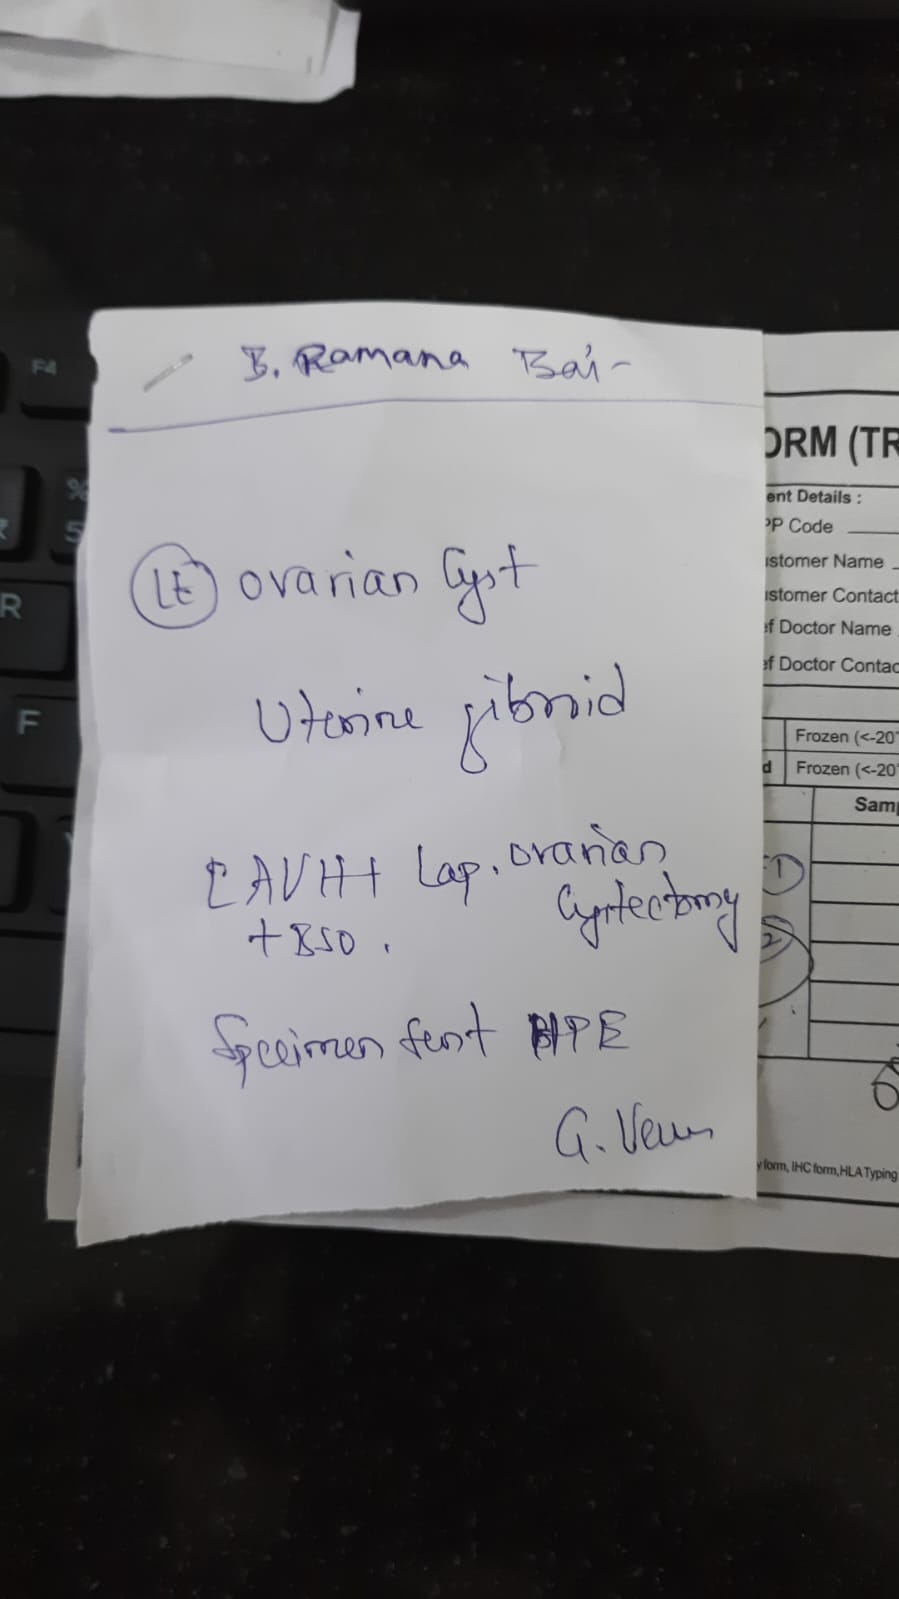 B. Ramana Bai -
LE ovarian Cyst
Uterine fibroid
LAVH + Lap. ovarian
Cystectomy
+ BSO .
Specimen sent HPE
G.
ORM (TR
ent Details :
PP Code
stomer Name
stomer Contact
ef Doctor Name
ef Doctor Contac
Frozen (<-20°
d Frozen (<-20°
Sam
1)
2)
y form, IHC form, HLA Typing
F4
%
5
R
F